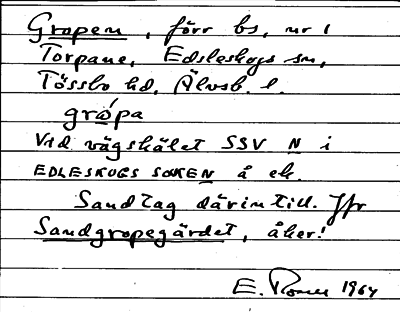 Gropen, förr bs, nr 1
Torpane, Edsleskogs sn,
Tössbo hd, Älvsb. l.
grǻpa
Vid vägskälet SSV N i
EDLESKOGS SOKEN å ek.
Sandtag därintill. Jfr
Sandgropegärdet, åker!
E. 1964